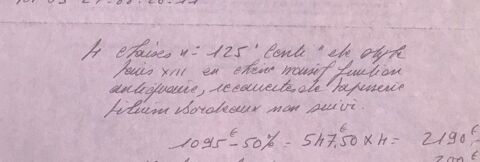 4 chaises n° 125 "Conti" de style
Louis XIII en chêne massif finition
antiquaire, recouvertes de tapisserie
Bordeaux non suivi.
1095€ - 50% = 547,50€ x 4 = 2190